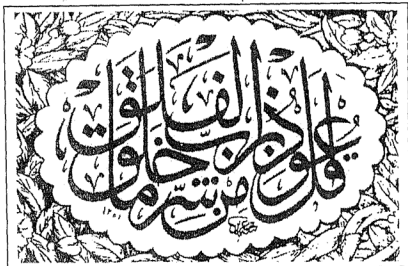 قل أعوذ برب الفلق من شر ما خلق
١٣٥١